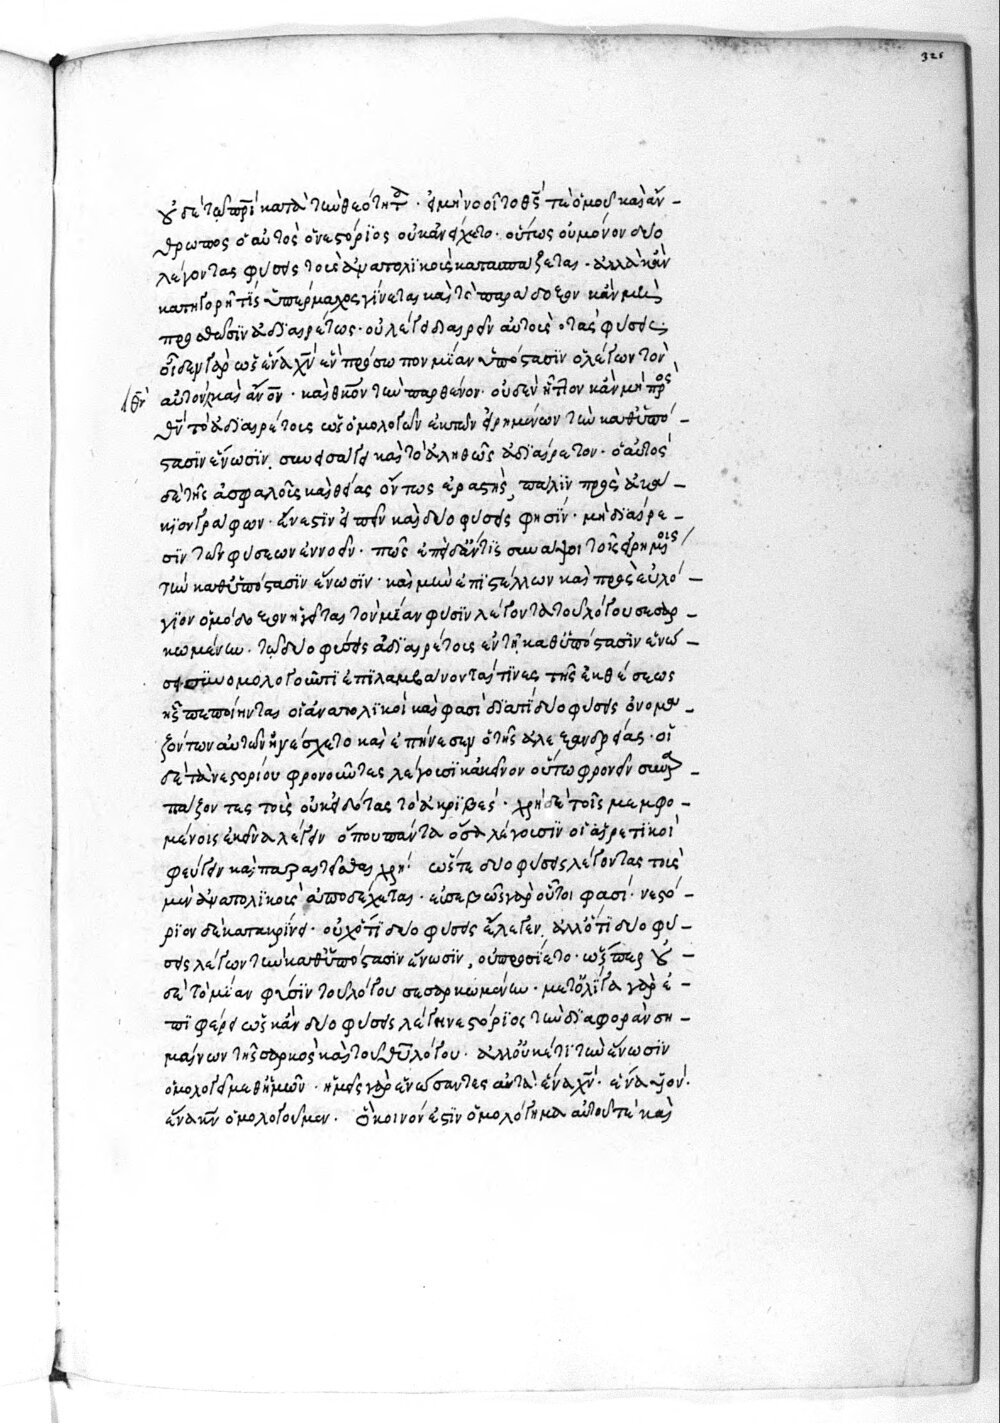 325
οὐδὲ τῷ πρὶ κατὰ τὴν θεότητα · εἰ μὴ νοοῖτο θς τὲ ὁμοῦ καὶ ἄν-
θρωπος ὁ αὐτὸς ὁ νεστόριος οὐκ ἀνείχετο · οὕτως οὐ μόνον δύο
λέγοντας φύσεις τοῖς ἀνατολικοῖς καταπαίζεται · ἀλλὰ κἄν
κατηγορῇ τις ὑπέρμαχος γίνεται καὶ τὸ παράδοξον κἂν μὴ
προσθῶσιν ἀδιαιρέτως · οὐ λέγει διαιρεῖν αὐτοὺς τὰς φύσεις
οἶδεν γὰρ ὡς ἕνα χν ἓν πρόσωπον μίαν ὑπόστασιν ὁ λέγων τὸν
αὐτὸν καὶ ἄνον · καὶ θκον τὴν παρθένον · οὐδὲν ἧττον κἂν μὴ προς
θν
θῇ τὸ ἀδιαιρέτοις ὡς ὁμολογεῖν ἐκ τῶν εἰρημένων τὴν καθ' ὑπό-
στασιν ἕνωσιν, συνεισάγει καὶ τὸ ἀληθῶς ἀδιαίρετον · ὁ αὐτὸς
δὲ τῆς ἀσφαλοῦς καὶ θείας ὄντως ἐραστὴς, πάλιν πρὸς ἀκά-
κιον γράφων · ἔνεστιν εἰπεῖν καὶ δύο φύσεις φησίν · μὴ διαίρε-
σιν τῶν φύσεων ἐννοεῖν · πῶς ἐπειδάν τις συνάψοι τοῖς εἰρημένοις
τὴν καθ' ὑπόστασιν ἕνωσιν · καὶ μὴν ἐπιστέλλων καὶ πρὸς εὐλό-
γιον ὁμόδοξον ἡγεῖται τὸν μίαν φύσιν λέγοντα τοῦ λόγου σεσαρ-
κωμένην · τῷ δύο φύσεις ἀδιαιρέτοις ἐν τῇ καθ' ὑπόστασιν ἑνώ-
σει ὁμολογοῦντι ἐπιλαμβάνονταί τινες τῆς ἐκθέσεως
ἧς πεποίηνται οἱ ἀνατολικοὶ καὶ φασὶ διατί δύο φύσεις ὀνομα-
ζόντων αὐτῶν ἠνέσχετο καὶ ἐπῄνεσεν ὁ τῆς ἀλεξανδρείας · οἱ
δὲ τὰ νεστορίου φρονοῦντες λέγουσι κἀκεῖνον οὕτω φρονεῖν συναρ-
πάζοντες τοὺς οὐκ εἰδότας τὸ ἀκριβές · χρὴ δὲ τοῖς μεμφο-
μένοις ἐκεῖνα λέγειν ὅτι οὐ πάντα ὅσα λέγουσιν οἱ αἱρετικοὶ
φεύγειν καὶ παραιτεῖσθαι χρή · ὥστε δύο φύσεις λέγοντας τοὺς
μὲν ἀνατολικοὺς ἀποδέχεται · εὐσεβῶς γὰρ οὗτοι φασί · νεστό-
ριον δὲ κατακρίνει · οὐχ ὅτι δύο φύσεις ἔλεγεν, ἀλλ' ὅτι δύο φύ-
σεις λέγων τὴν καθ' ὑπόστασιν ἕνωσιν, οὐ προσίετο · ὥσπερ οὐ-
δὲ τὸ μίαν φύσιν τοῦ λόγου σεσαρκωμένην · μετ' ὀλίγα γὰρ ἐ-
πιφέρει ὡς κἂν δύο φύσεις λέγει νεστόριος τὴν διαφορὰν ση-
μαίνων τῆς σαρκὸς καὶ τοῦ θυ λόγου · ἀλλ' οὐκέτι τὴν ἕνωσιν
ὁμολογεῖ μεθ' ἡμῶν · ἡμεῖς γὰρ ἑνώσαντες αὐτὰ ἕνα χν · ἕνα υἱόν ·
ἕνα κν ὁμολογοῦμεν · ὃ κοινόν ἐστιν ὁμολόγημα αὐτοῦ τὲ καὶ